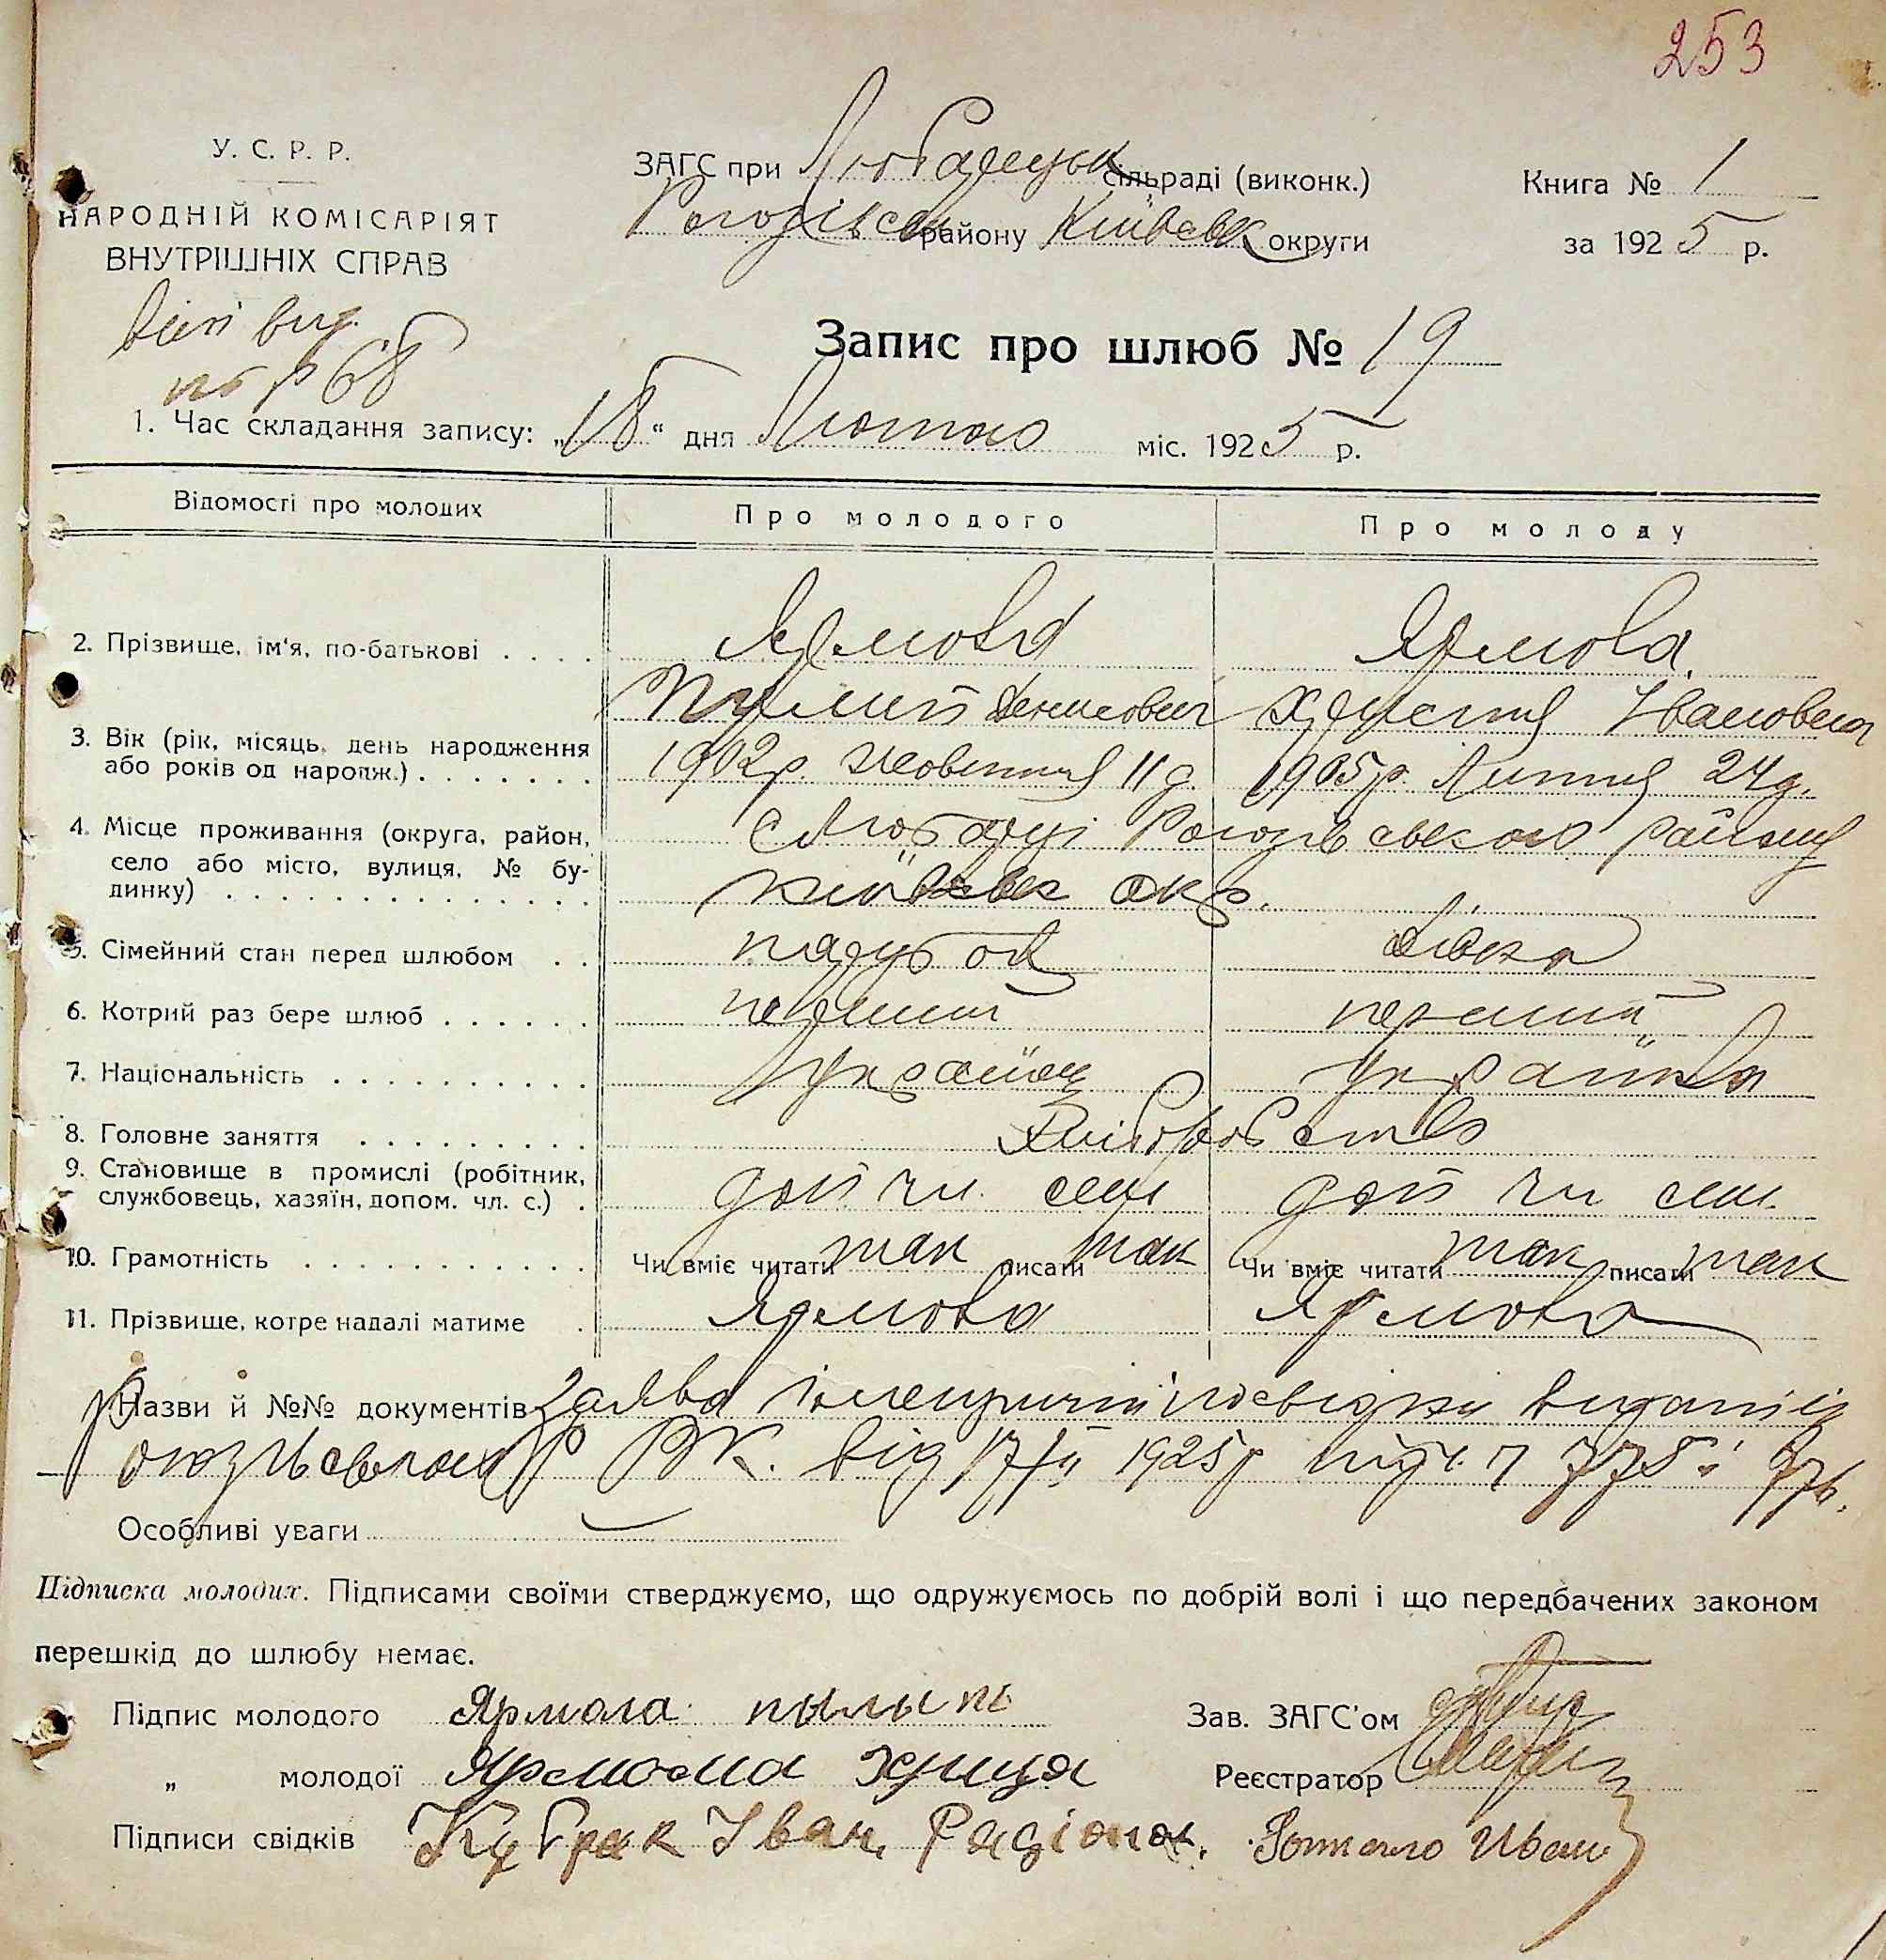 253
У. С. Р. Р.
НАРОДНІЙ КОМІСАРІЯТ
ВНУТРІШНІХ СПРАВ
ЗАГС при Любарецьк сільраді (виконк.)
Рогозівськ району Київськ округи
Книга № 1
за 1925 р.
№ 68
Запис про шлюб № 19
1. Час складання запису: „18“ дня Лютого міс. 1925 р.
Відомості про молодих
Про молодого
Про молоду
2. Прізвище, ім'я, по-батькові . . . .
Ярмола
Ярмола.
Денисович
Івановна
3. Вік (рік, місяць, день народження
або років од народж.) . . . . . . .
1902р. Жовтня 11 д.
1905р. Липня 24д.
4. Місце проживання (округа, район,
село або місто, вулиця, № бу-
динку) . . . . . . . . . . . . . .
с Любарці Рогозівського району
Київськ окр.
5. Сімейний стан перед шлюбом . .
парубок
дівка
6. Котрий раз бере шлюб . . . . . .
перший
перший
7. Національність . . . . . . . . . . .
українец
українка
8. Головне заняття . . . . . . . . . .
Хліборобство
9. Становище в промислі (робітник,
службовець, хазяїн, допом. чл. с.) .
доп чл. сем
доп чл сем.
10. Грамотність . . . . . . . . . . . .
Чи вміє читати так писати так
Чи вміє читати так писати так
11. Прізвище, котре надалі матиме .
Ярмола
Ярмола
Назви й №№ документів Заява і посвідки видані із
Рогозівського РВК. від 17/ІІ 1925р під ч. 775 і 776.
Особливі уваги
Підписка молодих. Підписами своїми стверджуємо, що одружуємось по добрій волі і що передбачених законом
перешкід до шлюбу немає.
Підпис молодого Ярмола пылып
Зав. ЗАГС'ом
„ молодої Ярмола
Реєстратор
Підписи свідків Кубрак Іван Радіонов. Иван